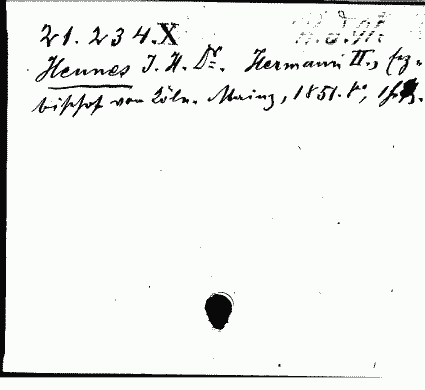 21.234.X
Hennes J. H. Dr. Hermann II., Erz-
bischof von Köln. Mainz, 1851. 8°,